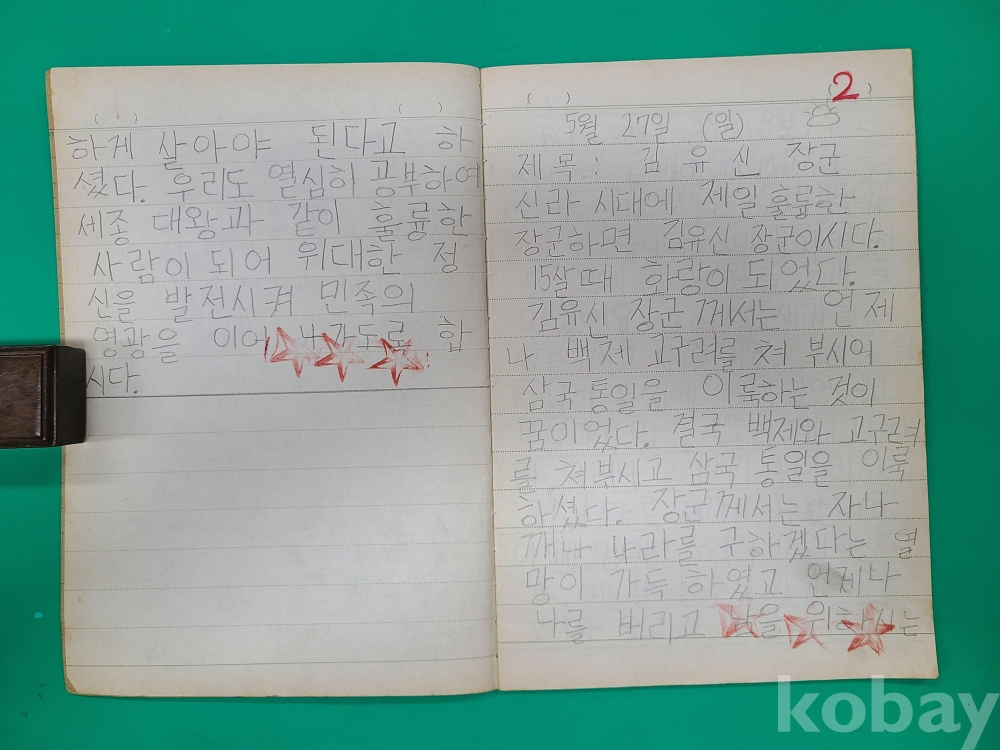 하게 살아야 된다고 하
셨다. 우리도 열심히 공부하여
세종 대왕과 같이 훌륭한
사람이 되어 위대한 정
신을 발전시켜 민족의
영광을 이어 나가도록 합
시다.
2
5월 27일 (일)
제목: 김유신 장군
신라 시대에 제일 훌륭한
장군하면 김유신 장군이시다.
15살때 화랑이 되었다.
김유신 장군께서는 언제
나 백제 고구려를 쳐 부시어
삼국통일을 이룩하는 것이
꿈이었다. 결국 백제와 고구려
를 쳐부시고 삼국 통일을 이룩
하셨다. 장군께서는 자나
깨나 나라를 구하겠다는 열
망이 가득 하였고 언제나
나를 버리고 남을 위하시는
kobay